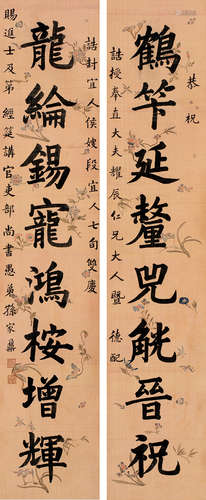 恭祝
鶴筭延釐兕觥晉祝
誥授奉直大夫耀辰仁兄大人暨 德配
誥封宜人侯嫂段宜人七旬雙慶
龍綸錫寵鴻桉增輝
賜進士及第經筵講官吏部尚書愚弟孫家鼐